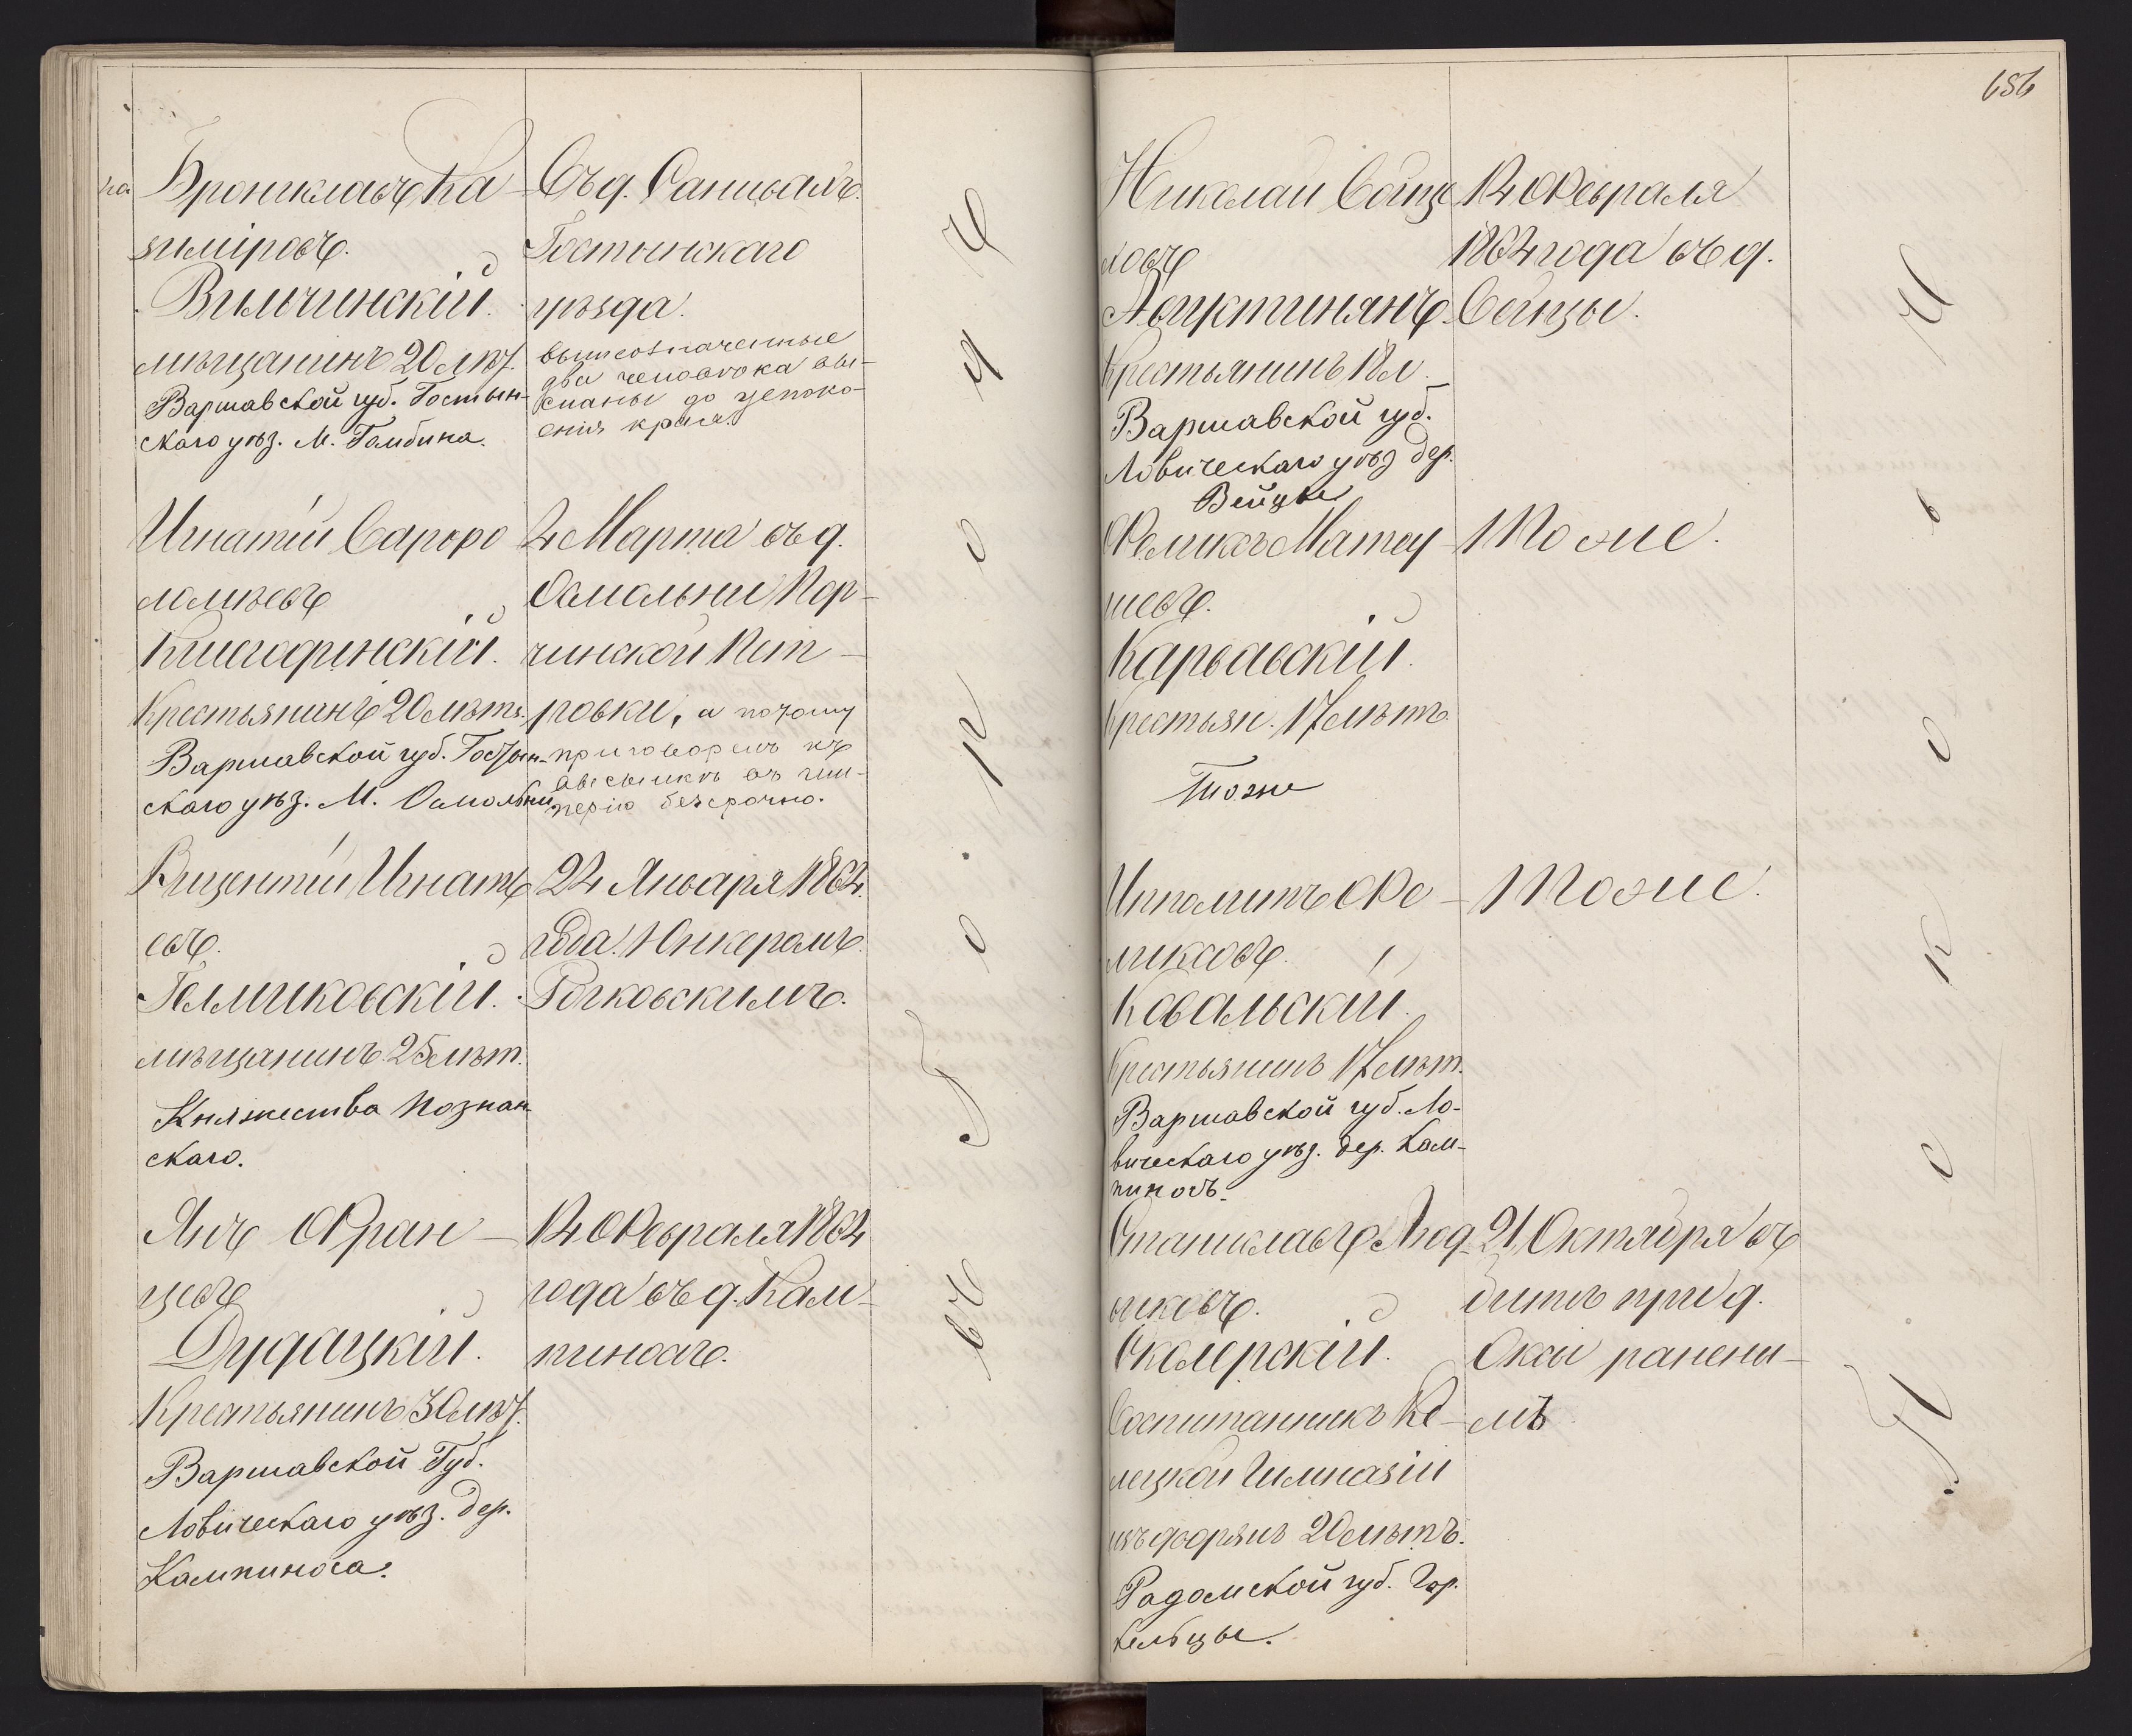 на
Брониславъ Ка-
зиміровъ.
Вильчинскій.
мѣщанинъ 20 лѣт.
Варшавской губ. Гостын-
скаго уѣз. М. Гомбина.
Въ д. Саншалѣ.
Гостынскаго
уѣзда.
вышеозначенные
два человѣка вы-
сланы до успоко-
енія края.
Игнатій Варѳо
ломѣевъ
Крестьянинъ 20 лѣтъ.
Варшавской губ. Гостын-
скаго уѣз. М. Осмольни
2 Марта въ д.
Осмольни Пор-
чинской Пет-
ровки, а потому
приговоренъ къ
высылкѣ въ им-
перію безсрочно.
Вицентій Игнать
евъ.
мѣщанинъ 25 лѣт.
Княжества Познан-
скаго.
22 Января 1864.
года. Юнкеромъ
Рочковскимъ.
Янъ Фран-
цевъ
Дудацкій.
Крестьянинъ 30 лѣт.
Варшавской Губ.
Ловическаго уѣз. дер.
Кампиноса.
12 Февраля 1864
года въ д. Кам-
пиносѣ.
656
Николай Войце
ховъ
Крестьянинъ 18 л.
Варшавской губ.
Ловическаго уѣз дер.
Вейцы
12 Февраля
1864 года въ д.
Вейцы.
Феликсъ Матеу-
шевъ.
Карвавскій.
Крестьян. 17 лѣтъ.
Тоже
Тоже.
Ипполитъ Фе-
ликсовъ.
Ковальскій.
Крестьянинъ 17 лѣт.
Варшавской губ. Ло-
вическаго уѣз. дер. Кам-
пиносъ.
Тоже.
Станиславъ Люд-
виковъ.
Воспитанникъ Кѣ-
лецкой Гимназіи
изъ дворянъ 20 лѣтъ.
Радомской губ. Гор.
Кельцы.
21 Октября въ
битвѣ при д.
Окси ранены-
мъ